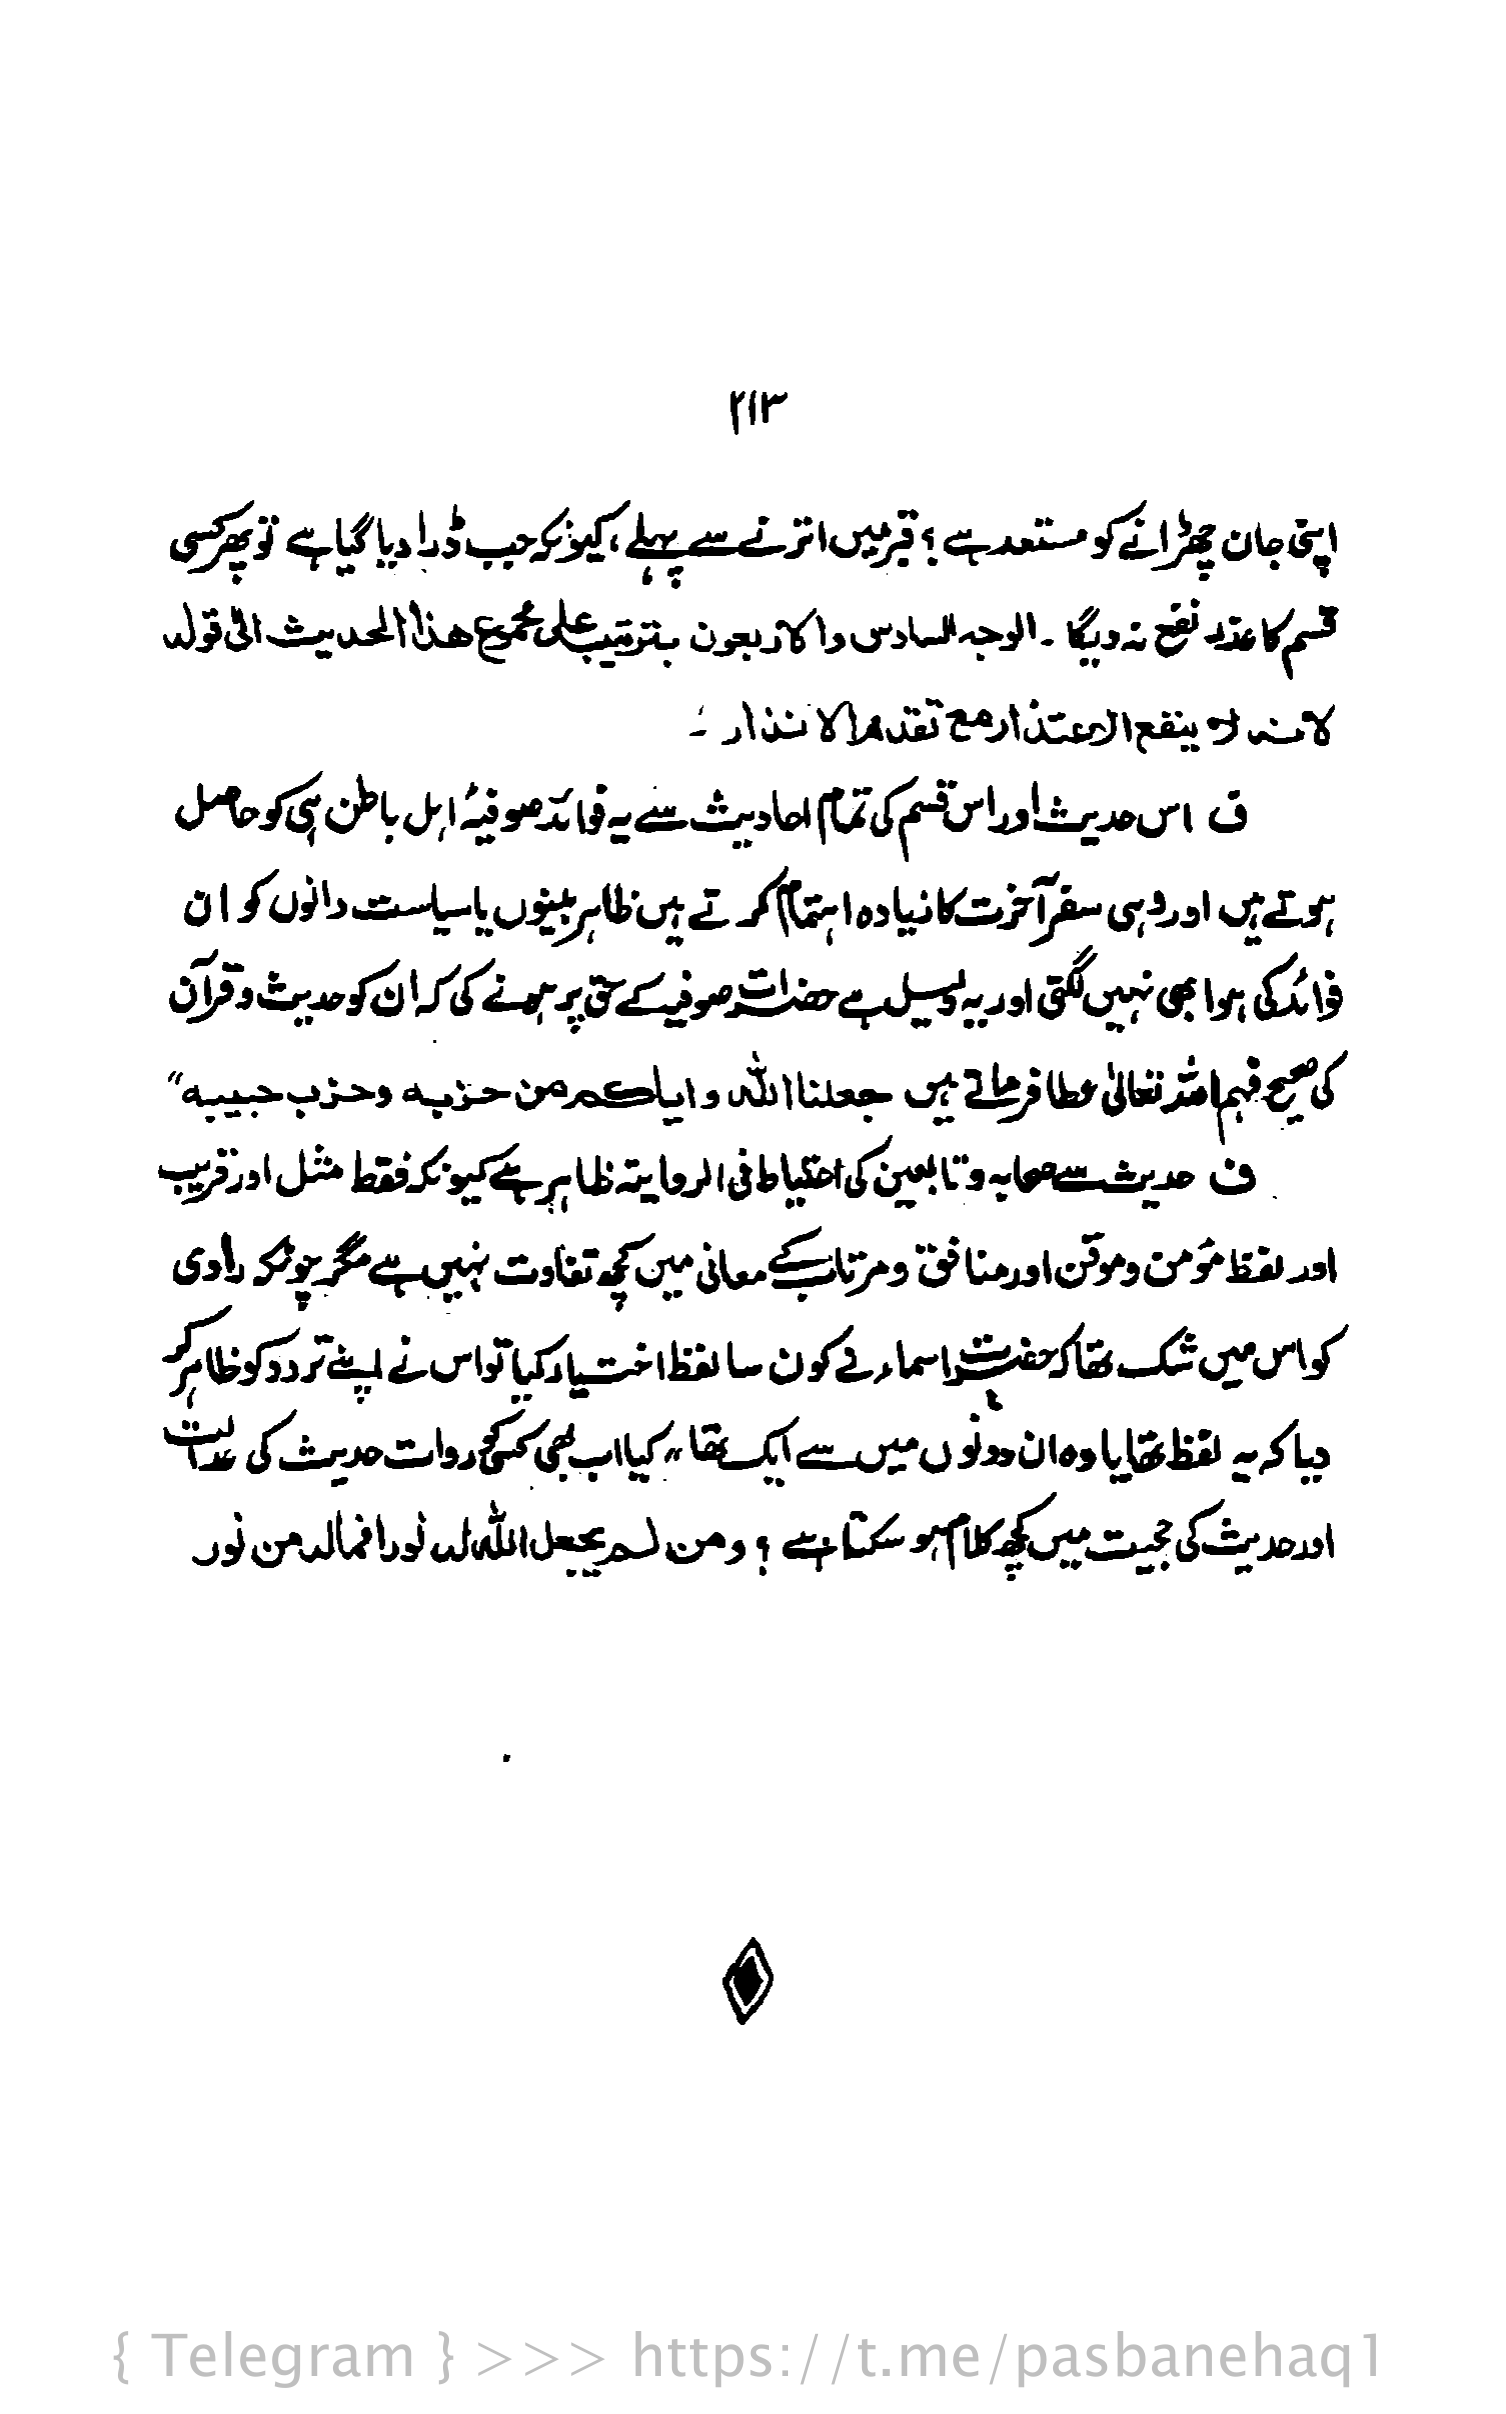 ۲۱۳
اپنی جان چھڑانے کو مستعد ہے ؟ قبر میں اترنے سے پہلے ، کیونکہ جب ڈرا دیا گیا ہے تو پھر کسی
قسم کا عذر نفع نہ دیگا ۔ الوجہ السادس والاربعون یترتب علی مجموع ھذا الحدیث الی قولہ
لانہ لا ینفع الاعتذار مع تقدم الانذار ۔
ف اس حدیث اور اس قسم کی تمام احادیث سے یہ فوائد صوفیۂ اہل باطن ہی کو حاصل
ہوتے ہیں اور وہی سفر آخرت کا زیادہ اہتمام کرتے ہیں ظاہر بینوں یا سیاست دانوں کو ان
فوائد کی ہوا بھی نہیں لگتی اور یہ دلیل ہے حضرات صوفیہ کے حق پر ہونے کی کہ ان کو حدیث و قرآن
کی صحیح فہم اللہ تعالیٰ عطا فرماتے ہیں جعلنا اللہ وایاکم من حزبہ وحزب حبیبہ "
ف حدیث سے صحابہ و تابعین کی احتیاط فی الروایتہ ظاہر ہے کیونکہ فقط مثل اور قریب
اور لفظ مؤمن و موقن اور منافق و مرتاب کے معانی میں کچھ تفاوت نہیں ہے مگر چونکہ راوی
کو اس میں شک تھا کہ حضرت اسماء نے کون سا لفظ اختیار کیا تو اس نے اپنے تردد کو ظاہر کر
دیا کہ یہ لفظ تھا یا وہ ان دونوں میں سے ایک تھا " کیا اب بھی کسی کو روات حدیث کی عدالت
اور حدیث کی حجیت میں کچھ کلام ہو سکتا ہے ؟ ومن لم یجعل اللہ لہ نورا فمالہ من نور
{ Telegram } >>> https://t.me/pasbanehaq1